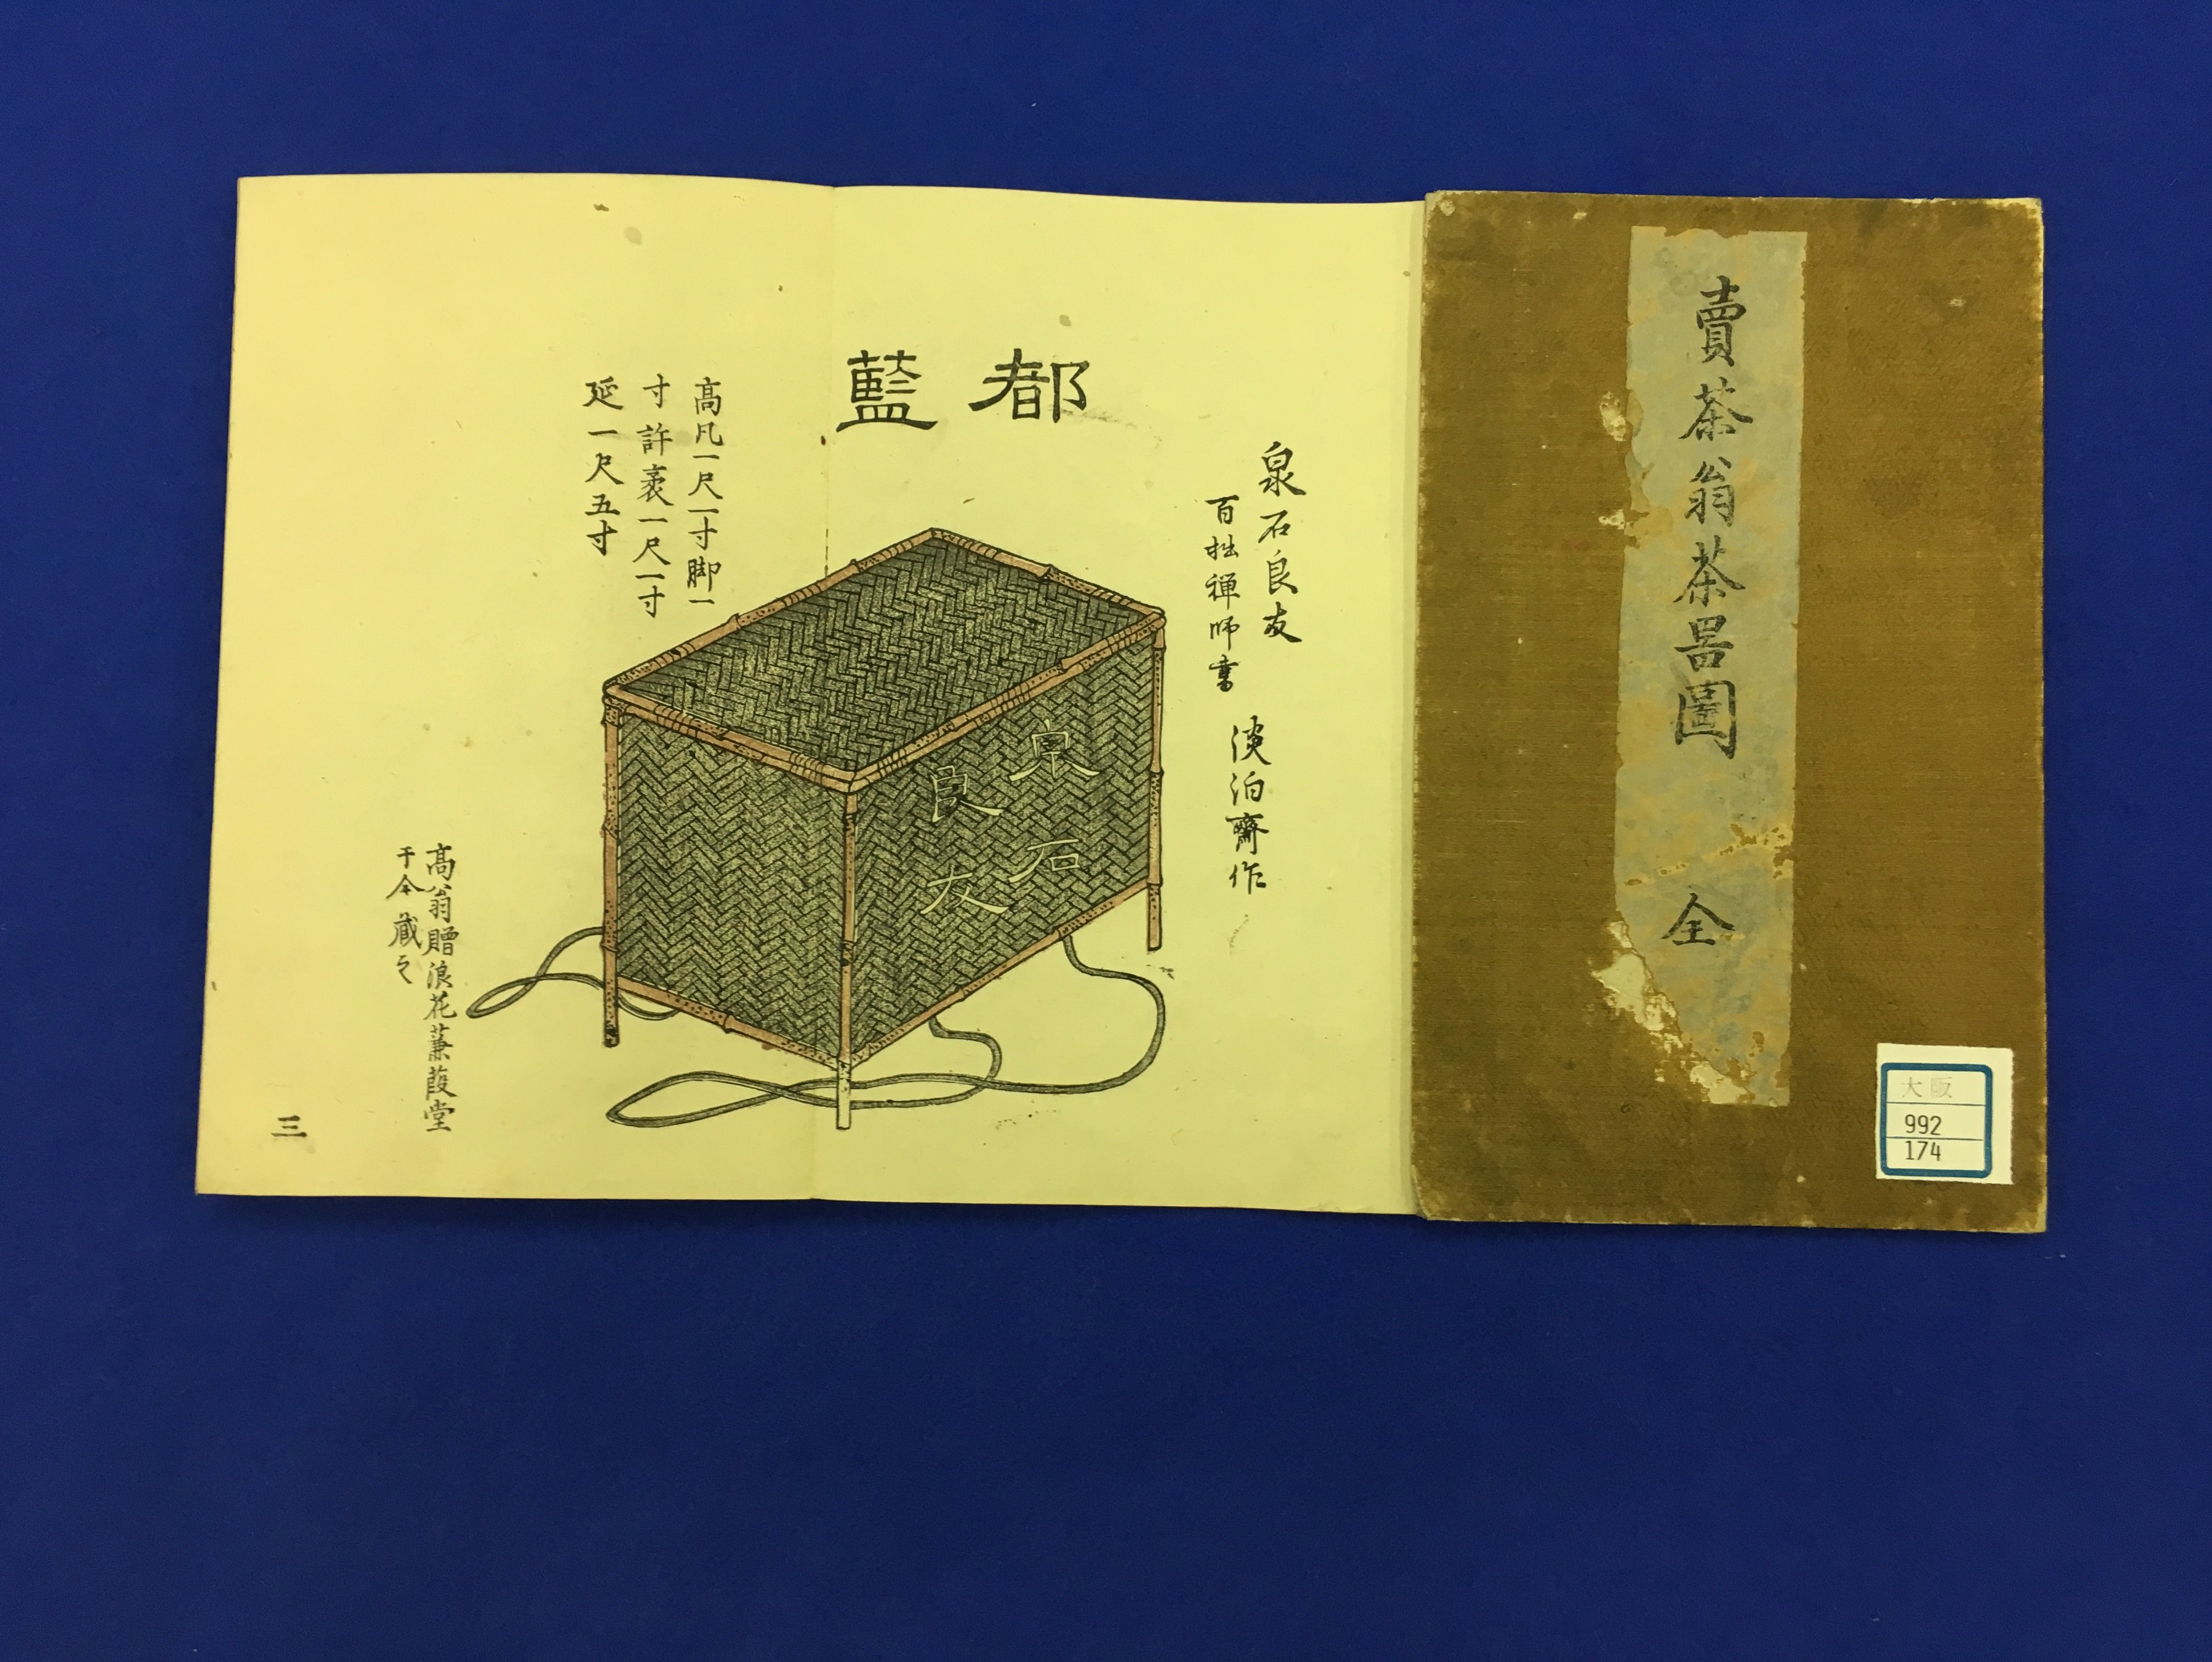 賣茶翁茶器圖　全
大阪
992
174
都藍
泉石良友
百拙禅師書
淡泊齋作
泉石
良友
高凡一尺一寸脚一
寸許袤一尺一寸
延一尺五寸
高翁贈浪花蒹葭堂
于今藏之
三